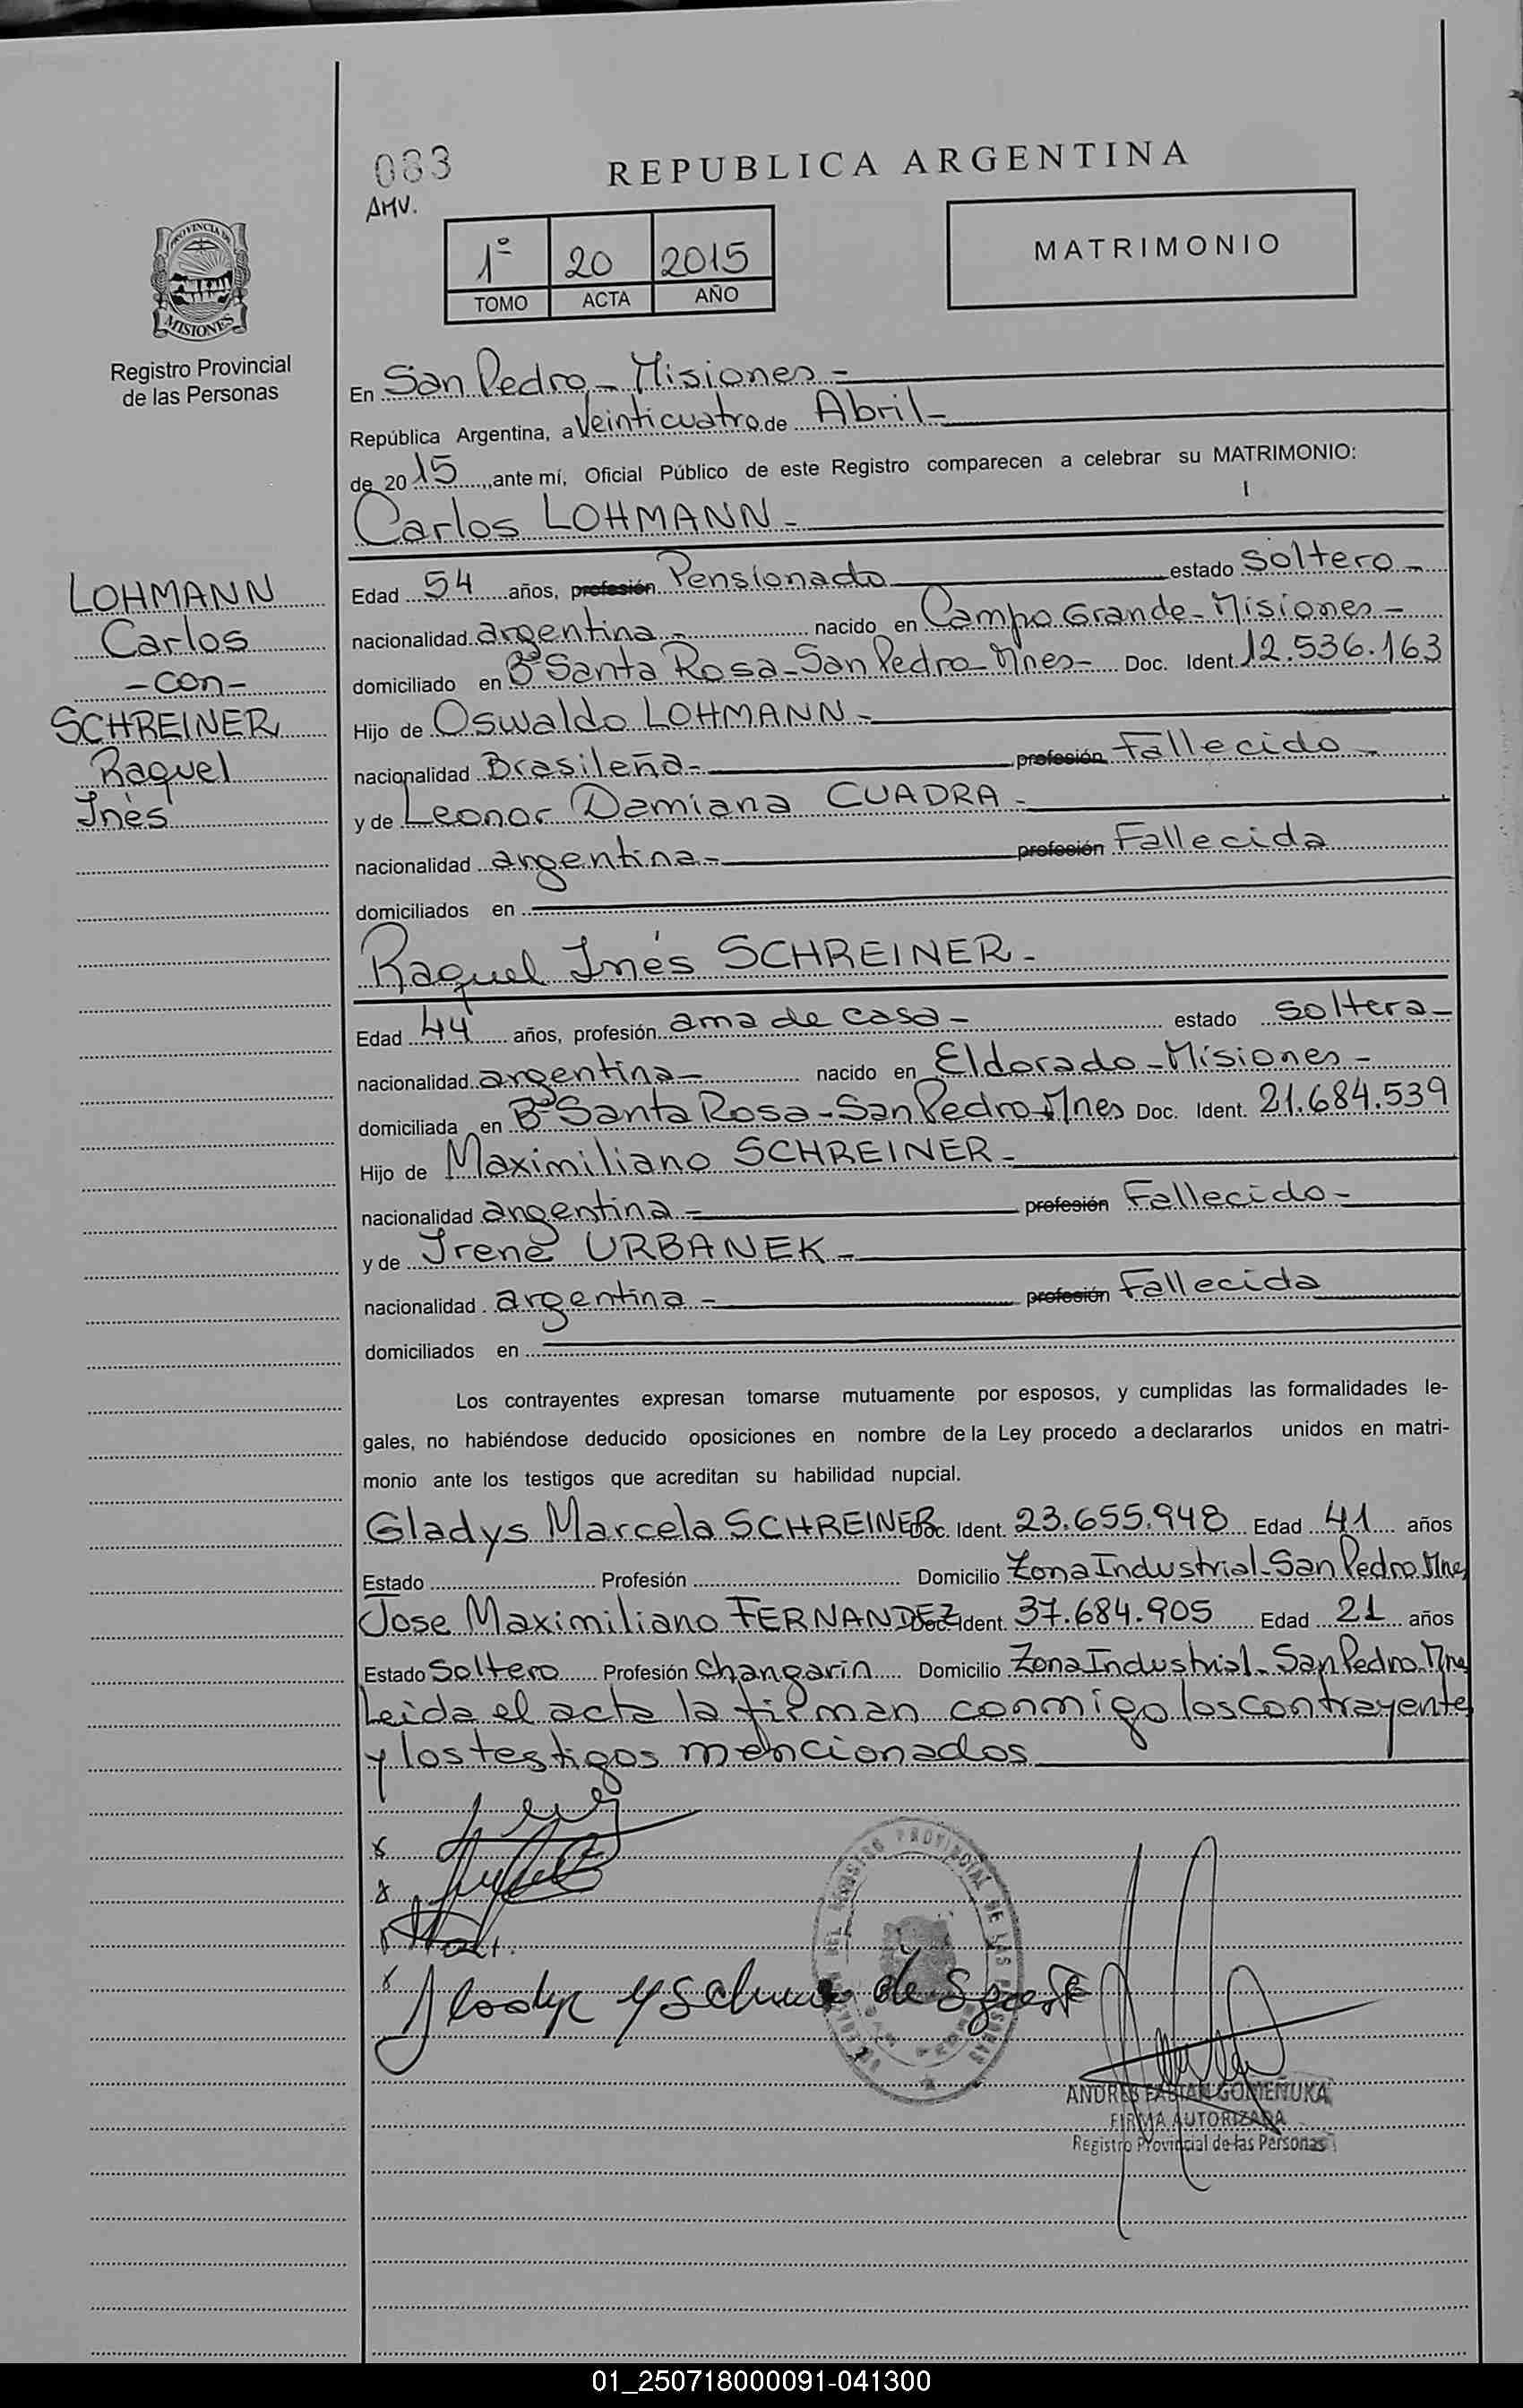 083
REPUBLICA ARGENTINA
AMV.
1º 20 2015
TOMO ACTA AÑO
MATRIMONIO
PROVINCIA DE
MISIONES
Registro Provincial
de las Personas
En San Pedro - Misiones -
República Argentina, a Veinticuatro de Abril -
de 2015, ante mí, Oficial Público de este Registro comparecen a celebrar su MATRIMONIO:
Carlos LOHMANN -
LOHMANN
Carlos
- con -
SCHREINER
Raquel
Inés
Edad 54 años, profesión Pensionado estado Soltero -
nacionalidad argentina - nacido en Campo Grande - Misiones -
domiciliado en Bº Santa Rosa - San Pedro - Mnes - Doc. Ident. 12.536.163
Hijo de Oswaldo LOHMANN -
nacionalidad Brasileña - profesión Fallecido -
y de Leonor Damiana CUADRA -
nacionalidad argentina - profesión Fallecida
domiciliados en
Raquel Inés SCHREINER -
Edad 44 años, profesión ama de casa - estado soltera -
nacionalidad argentina - nacido en Eldorado - Misiones -
domiciliada en Bº Santa Rosa - San Pedro Mnes Doc. Ident. 21.684.539
Hijo de Maximiliano SCHREINER -
nacionalidad argentina - profesión Fallecido -
y de Irene URBANEK -
nacionalidad argentina - profesión Fallecida
domiciliados en
Los contrayentes expresan tomarse mutuamente por esposos, y cumplidas las formalidades le-
gales, no habiéndose deducido oposiciones en nombre de la Ley procedo a declararlos unidos en matri-
monio ante los testigos que acreditan su habilidad nupcial.
Gladys Marcela SCHREINER Doc. Ident. 23.655.948 Edad 41 años
Estado Profesión Domicilio Zona Industrial - San Pedro Mnes
Jose Maximiliano FERNANDEZ Doc. Ident. 37.684.905 Edad 21 años
Estado Soltero Profesión changarin Domicilio Zona Industrial - San Pedro - Mnes
Leida el acta la firman conmigo los contrayente
y los testigos mencionados
REGISTRO PROVINCIAL DE LAS PERSONAS
ANDRES FABIAN GOMEÑUKA
FIRMA AUTORIZADA
Registro Provincial de las Personas
01_250718000091-041300